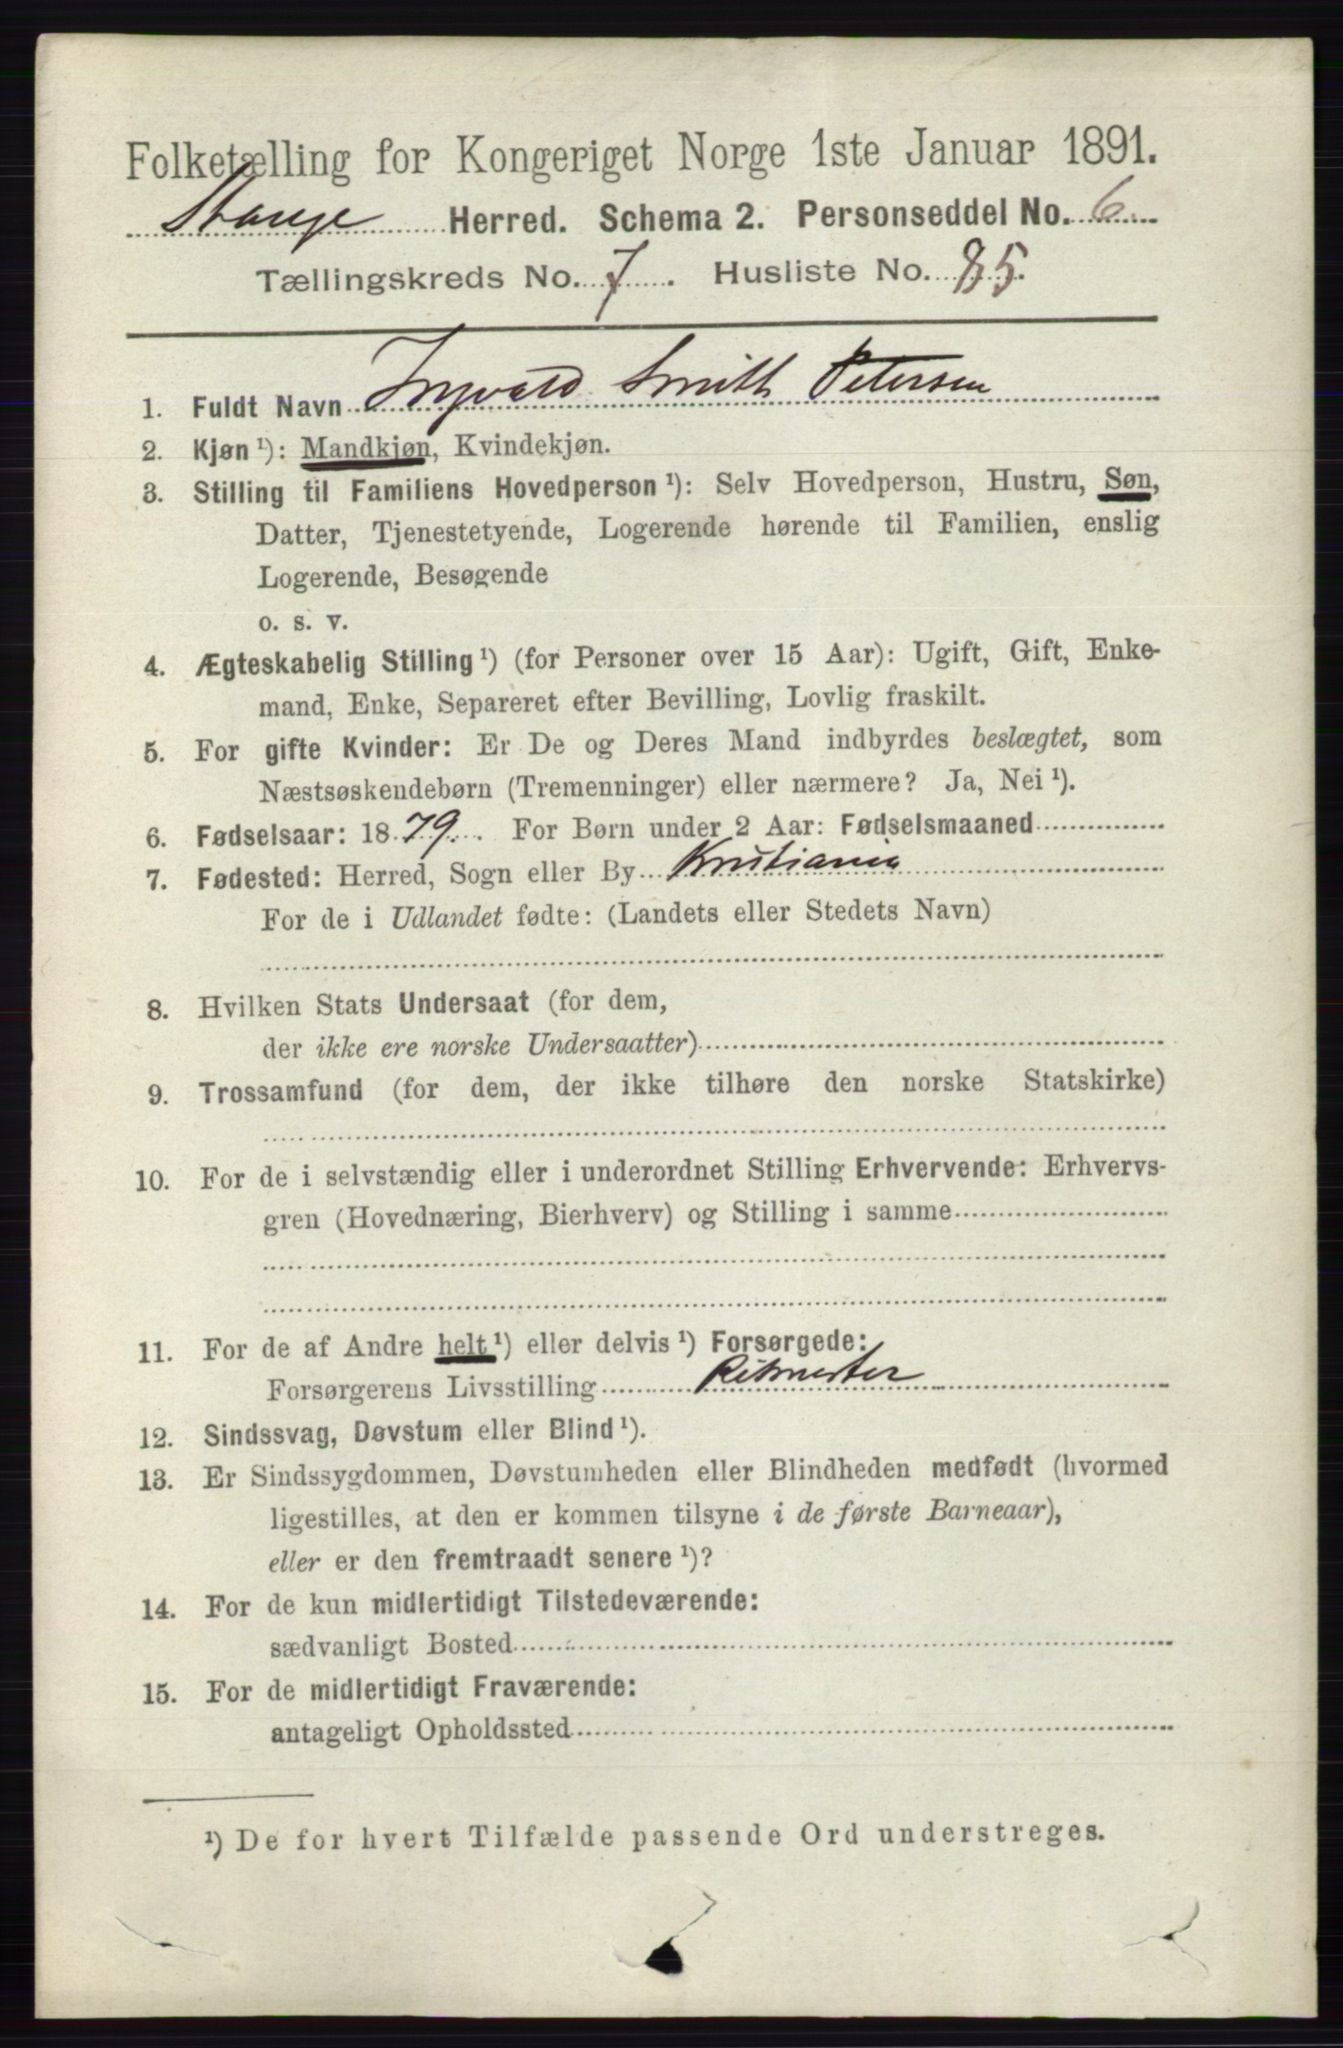 Folketælling for Kongeriget Norge 1ste Januar 1891.
Stange Herred. Schema 2. Personseddel No. 6
Tællingskreds No. 7. Husliste No. 85.
1. Fuldt Navn Ingvald Smith Petersen
2. Kjøn ¹): Mandkjøn, Kvindekjøn.
3. Stilling til Familiens Hovedperson ¹): Selv Hovedperson, Hustru, Søn,
Datter, Tjenestetyende, Logerende hørende til Familien, enslig
Logerende, Besøgende
o. s. v.
4. Ægteskabelig Stilling ¹) (for Personer over 15 Aar): Ugift, Gift, Enke-
mand, Enke, Separeret efter Bevilling, Lovlig fraskilt.
5. For gifte Kvinder: Er De og Deres Mand indbyrdes beslægtet, som
Næstsøskendebørn (Tremenninger) eller nærmere? Ja, Nei ¹).
6. Fødselsaar: 1879. For Børn under 2 Aar: Fødselsmaaned
7. Fødested: Herred, Sogn eller By Kristiania
For de i Udlandet fødte: (Landets eller Stedets Navn)
8. Hvilken Stats Undersaat (for dem,
der ikke ere norske Undersaatter)
9. Trossamfund (for dem, der ikke tilhøre den norske Statskirke)
10. For de i selvstændig eller i underordnet Stilling Erhvervende: Erhvervs-
gren (Hovednæring, Bierhverv) og Stilling i samme
11. For de af Andre helt ¹) eller delvis ¹) Forsørgede:
Forsørgerens Livsstilling Ritmester
12. Sindssvag, Døvstum eller Blind ¹).
13. Er Sindssygdommen, Døvstumheden eller Blindheden medfødt (hvormed
ligestilles, at den er kommen tilsyne i de første Barneaar),
eller er den fremtraadt senere ¹)?
14. For de kun midlertidigt Tilstedeværende:
sædvanligt Bosted
15. For de midlertidigt Fraværende:
antageligt Opholdssted
¹) De for hvert Tilfælde passende Ord understreges.